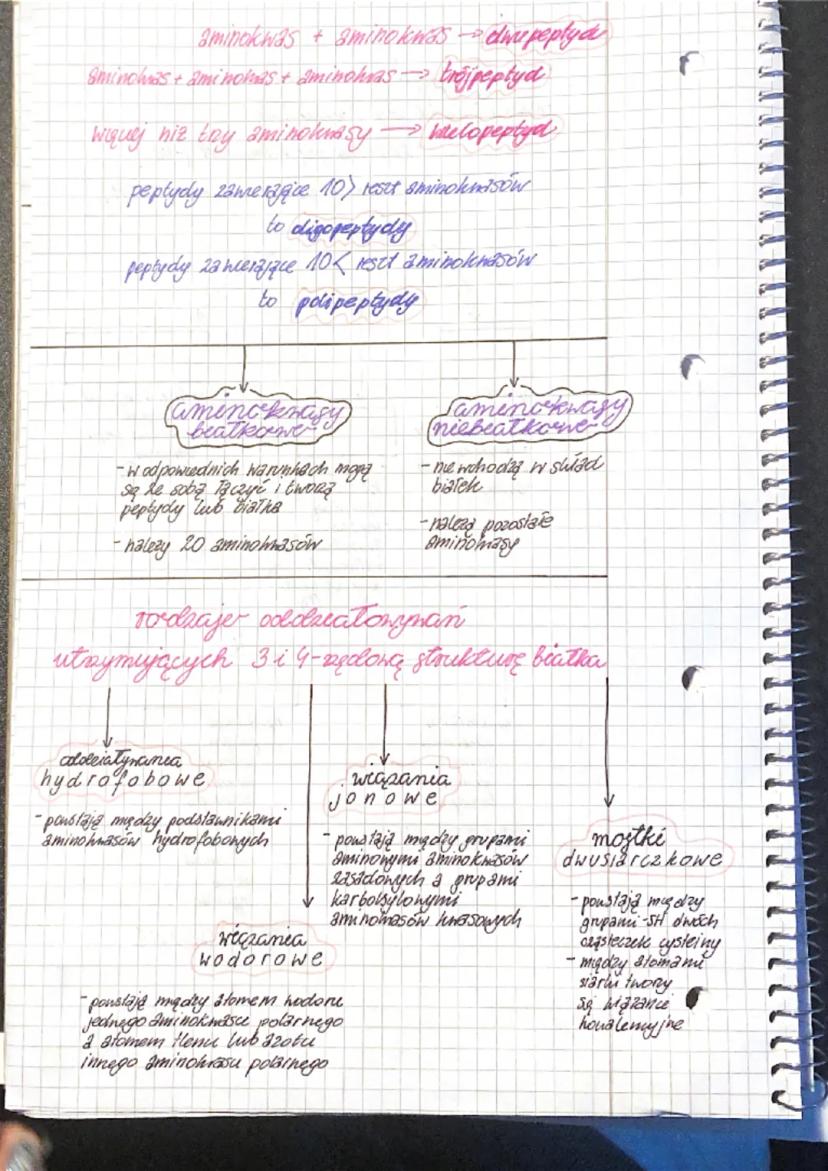 aminokwas + aminokwas → dwupeptyd
aminokwas + aminokwas + aminokwas → trójpeptyd
więcej niż trzy aminokwasy → wielopeptyd
peptydy zawierające 10> reszt aminokwasów
to oligopeptydy
peptydy zawierające 10< reszt aminokwasów
to polipeptydy
aminokwasy
białkowe
- w odpowiednich warunkach mogą
się ze sobą łączyć i tworzą
peptydy lub białka
- należy 20 aminokwasów
aminokwasy
niebiałkowe
- nie wchodzą w skład
białek
- należą pozostałe
aminokwasy
rodzaje oddziaływań
utrzymujących 3 i 4-rzędową strukturę białka
oddziaływania
hydrofobowe
- powstają między podstawnikami
aminokwasów hydrofobowych
wiązania
wodorowe
- powstają między atomem wodoru
jednego aminokwasu polarnego
a atomem tlenu lub azotu
innego aminokwasu polarnego
wiązania
jonowe
- powstają między grupami
aminowymi aminokwasów
zasadowych a grupami
karboksylowymi
aminokwasów kwasowych
mostki
dwusiarczkowe
- powstają między
grupami -SH dwóch
cząsteczek cysteiny
- między atomami
siarki tworzy
się wiązanie
kowalencyjne